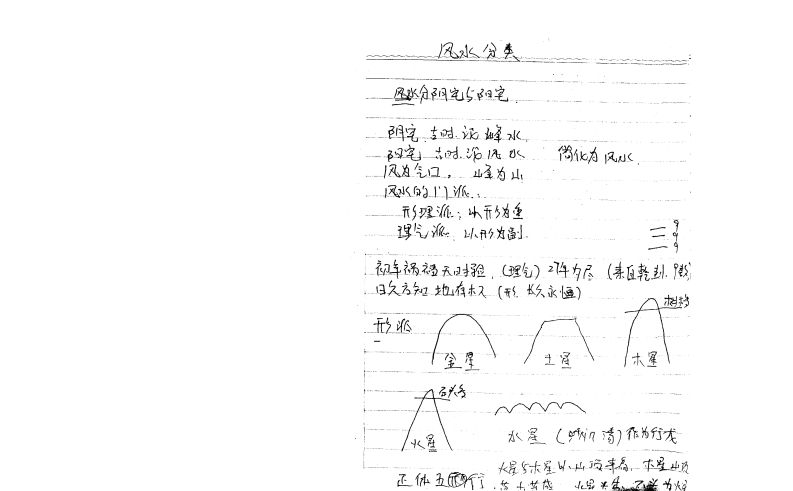 风水分类
风水分阴宅与阳宅
阴宅 古时 论 峰 水
阳宅 古时 论 风 水 简化为风水
风为气口， 峰为山
风水的门派：
形理派：以形为重
理气派 以形为副
三 9
9
二 9
初年祸福天时验 （理气）27年为尽 （来自乾卦
日久方知地有权（形 长久永恒）
形派
金星 土星 木星
石头多
火星
水星 作为行龙
火星与木星以山顶来看 木星山顶
正体五行